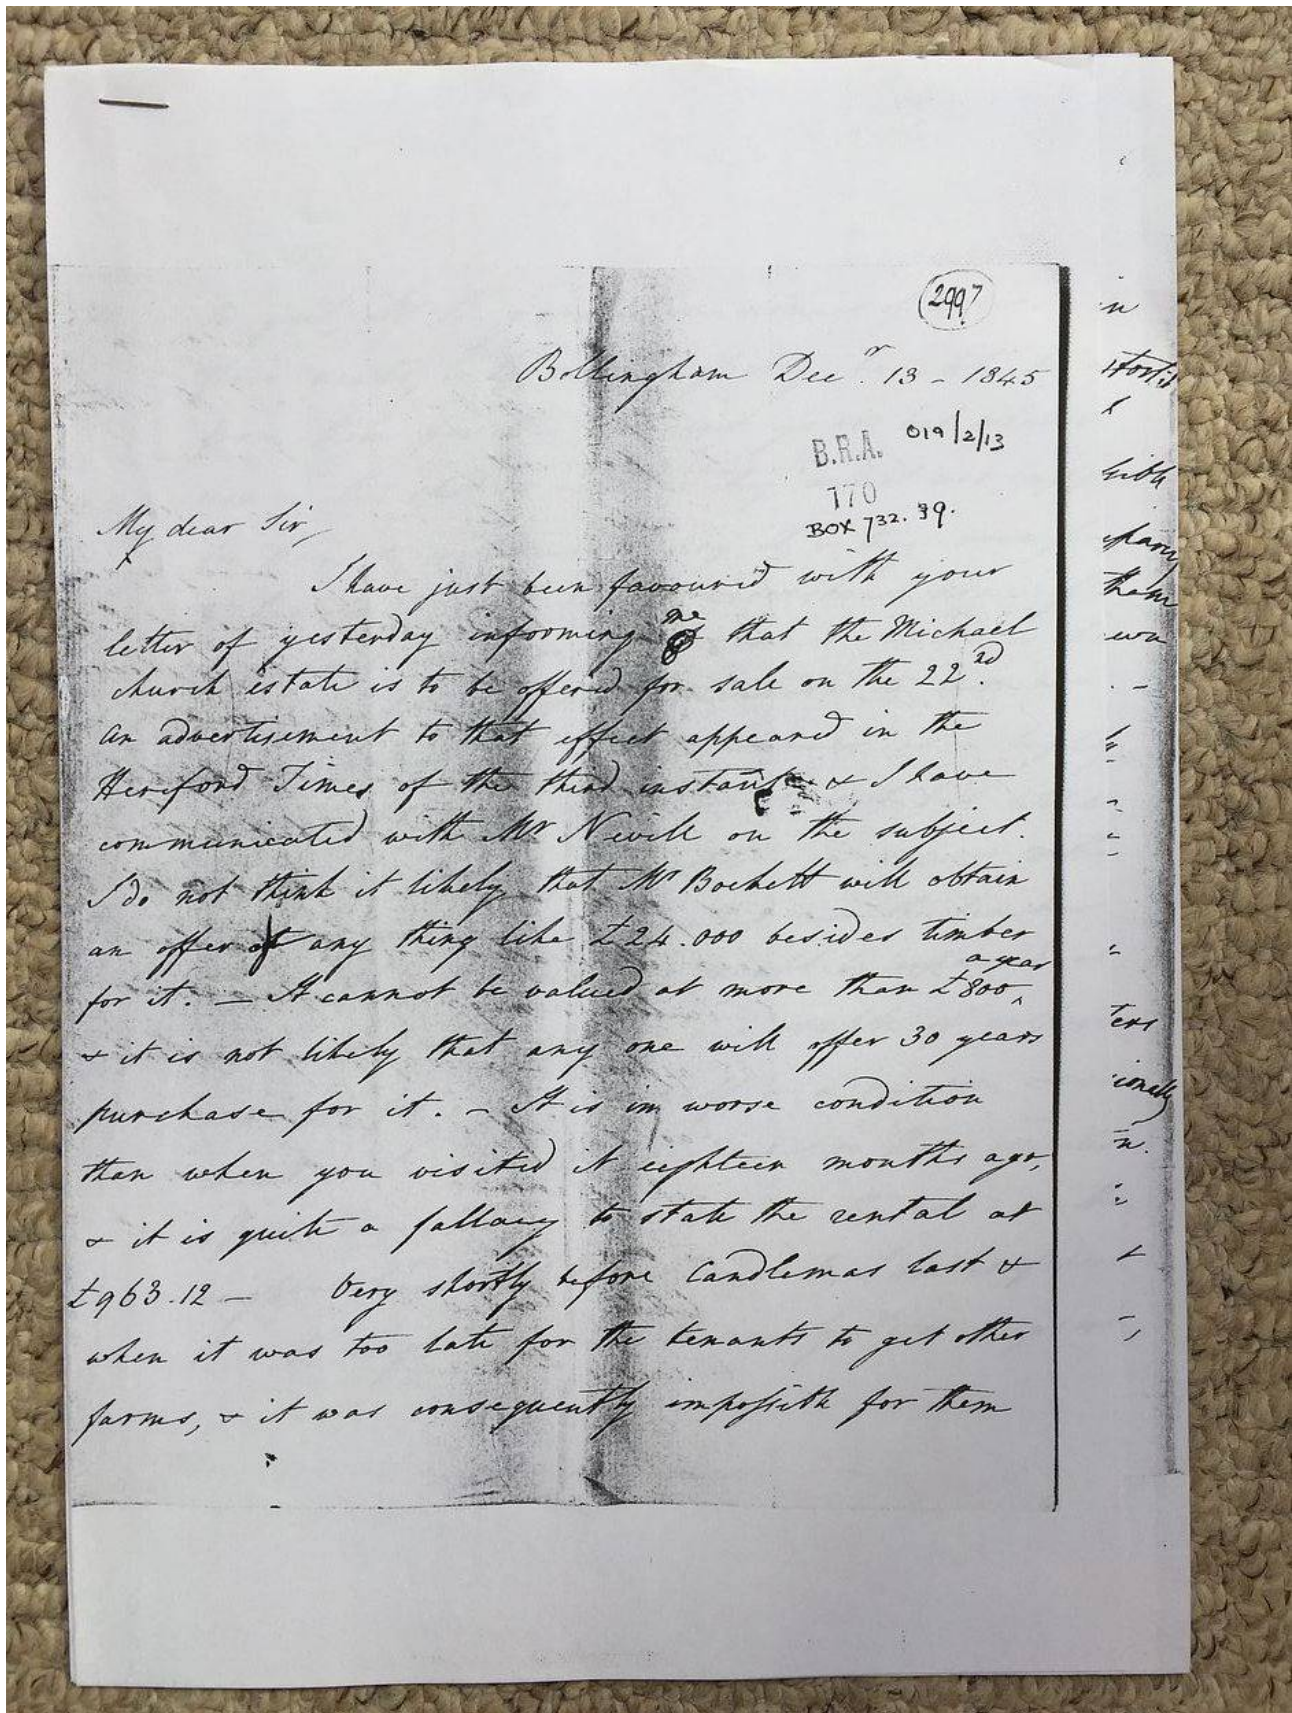 2997
Bollingham Decr. 13 - 1845
B.R.A. 019/2/13
770
BOX 732. 39.
My dear Sir,
I have just been favoured with your
letter of yesterday informing me that the Michael
church estate is to be offered for sale on the 22nd.
An advertisement to that effect appeared in the
Hereford Times of the third instant & I have
communicated with Mr Nevill on the subject.
I do not think it likely that Mr Bockett will obtain
an offer of any thing like £24.000 besides timber
for it. - It cannot be valued at more than £800 a year
& it is not likely that any one will offer 30 years
purchase for it. - It is in worse condition
than when you visited it eighteen months ago,
& it is quite a fallacy to state the rental at
£963.12 - Very shortly before Candlemas last &
when it was too late for the tenants to get other
farms, & it was consequently impossible for them
in
them
ters